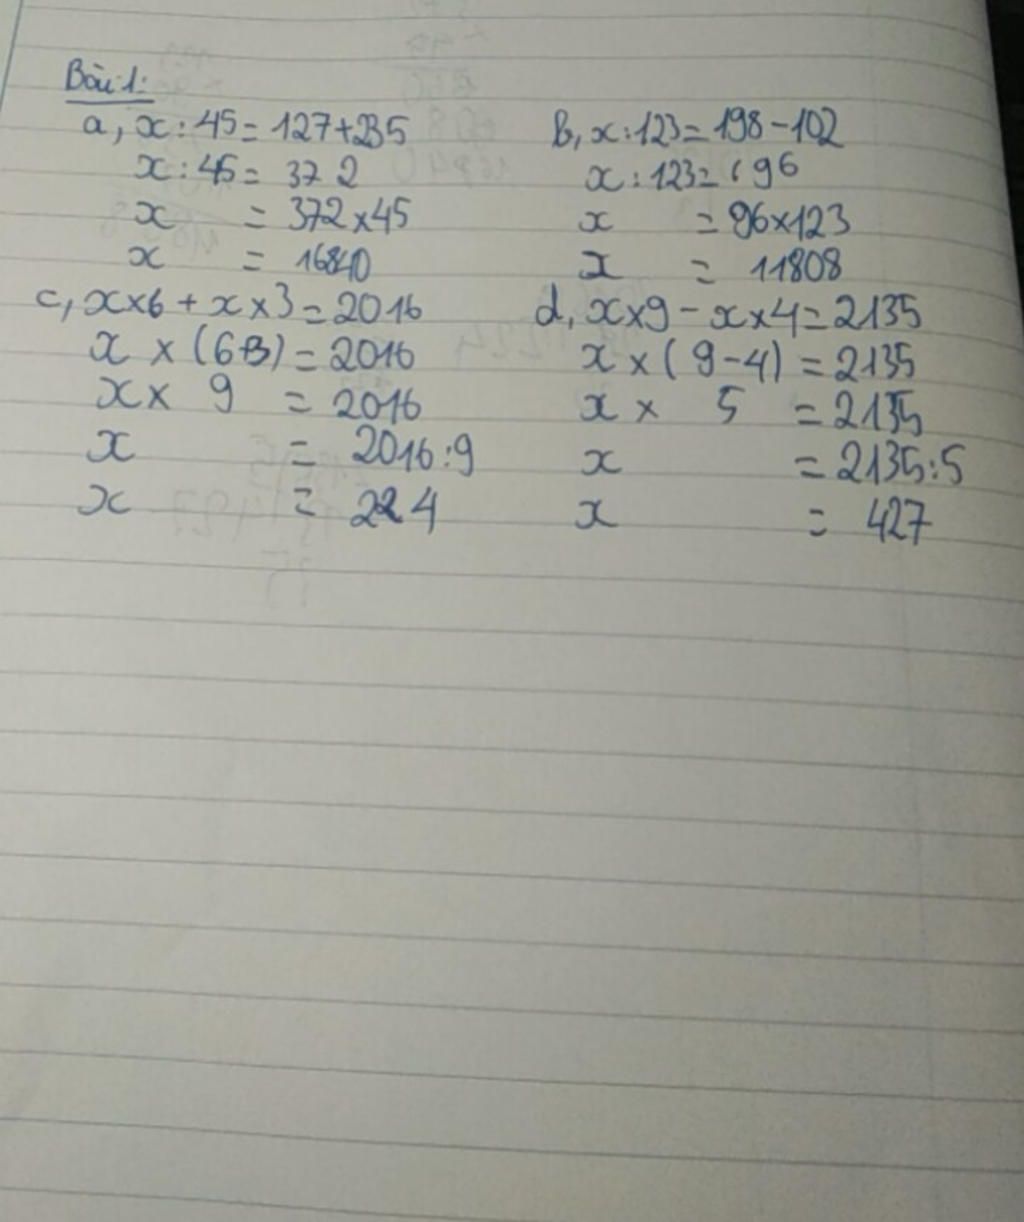 Bài 1:
a, x : 45 = 127 + 235
x : 45 = 372
x = 372 x 45
x = 16840
b, x : 123 = 198 - 102
x : 123 = 96
x = 96 x 123
x = 11808
c, x x 6 + x x 3 = 2016
x x (6+3) = 2016
x x 9 = 2016
x = 2016 : 9
x = 224
d, x x 9 - x x 4 = 2135
x x (9-4) = 2135
x x 5 = 2135
x = 2135 : 5
x = 427